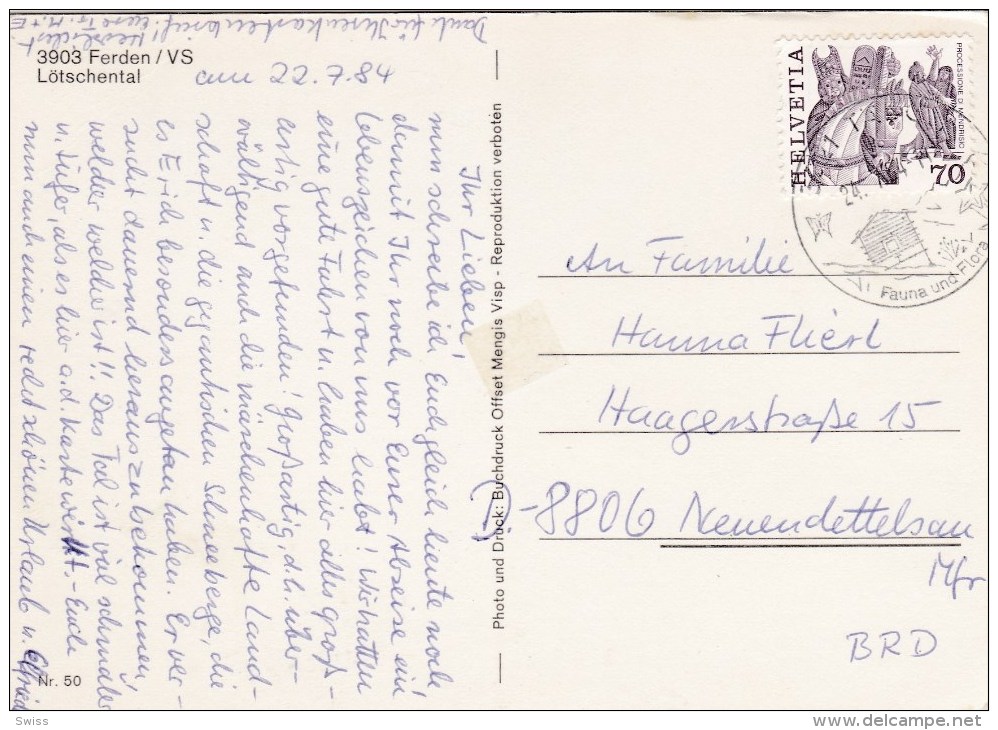 3903 Ferden / VS
Lötschental
am 22.7.84
Ihr Lieben!
nun schreibe ich Euch gleich heute noch,
damit Ihr noch vor Eurer Abreise ein
Lebenszeichen von uns habt! Wir hatten
eine gute Fahrt u. haben hier alles groß-
artig vorgefunden! Großartig, d.h. über-
wältigend auch die märchenhafte Land-
schaft u. die gigantischen Schneeberge, die
es Erich besonders angetan haben. Er ver-
sucht dauernd herauszubekommen,
welcher welcher ist!! Das Tal ist viel schmaler
u. tiefer, als es hier a.d. Karte wirkt. - Euch
nun auch einen recht schönen Urlaub u.
Danke für Ihren Kartenbrief!
Herzlichst
Nr. 50
Photo und Druck: Buchdruck Offset Mengis Visp - Reproduktion verboten
HELVETIA
PROCESSIONE DI MENDRISIO
70
24.
Fauna und Flora
An Familie
Hanna Flierl
Haagerstraße 15
D-8806 Neuendettelsau
Mfr
BRD
Swiss
delcampe.net